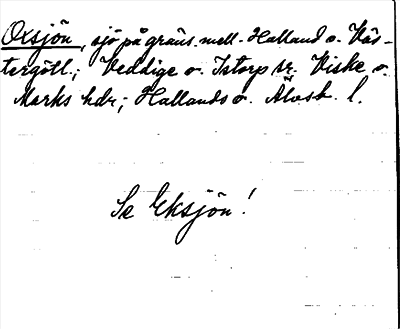 Oxsjön, sjö på gräns. mell. Halland o. Väs-
tergötl.; Veddige o. Istorp sn. Viske o.
Marks hdr; Hallands o. Älvsb. l.
Se Eksjön!